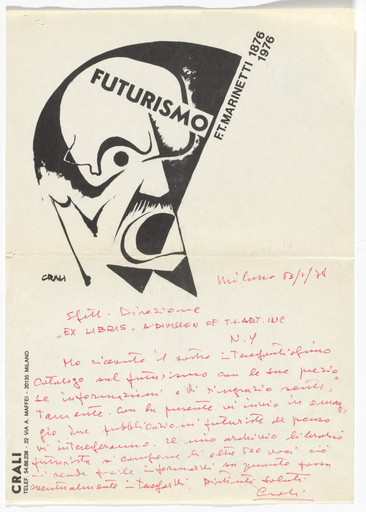 FUTURISMO
F.T. MARINETTI 1876
1976
CRALI
Milano
Spett. Direzione
"EX LIBRIS" A DIVISION OF T.J. ART. INC
N.Y
Ho ricevuto il vostro interessantissimo
catalogo sul futurismo con le sue prezio
se informazioni e vi ringrazio senti
tamente. Con la presente vi invio in omag
gio due pubblicazioni futuriste che penso
vi interesseranno. Il mio archivio librario
futurista si compone di oltre 500 voci ciò
mi rende facile informarvi su quanto possa
eventualmente interessarvi. Distinti saluti
Crali
CRALI
TELEF. 54.68.238 - 22 VIA A. MAFFEI - 20135 MILANO